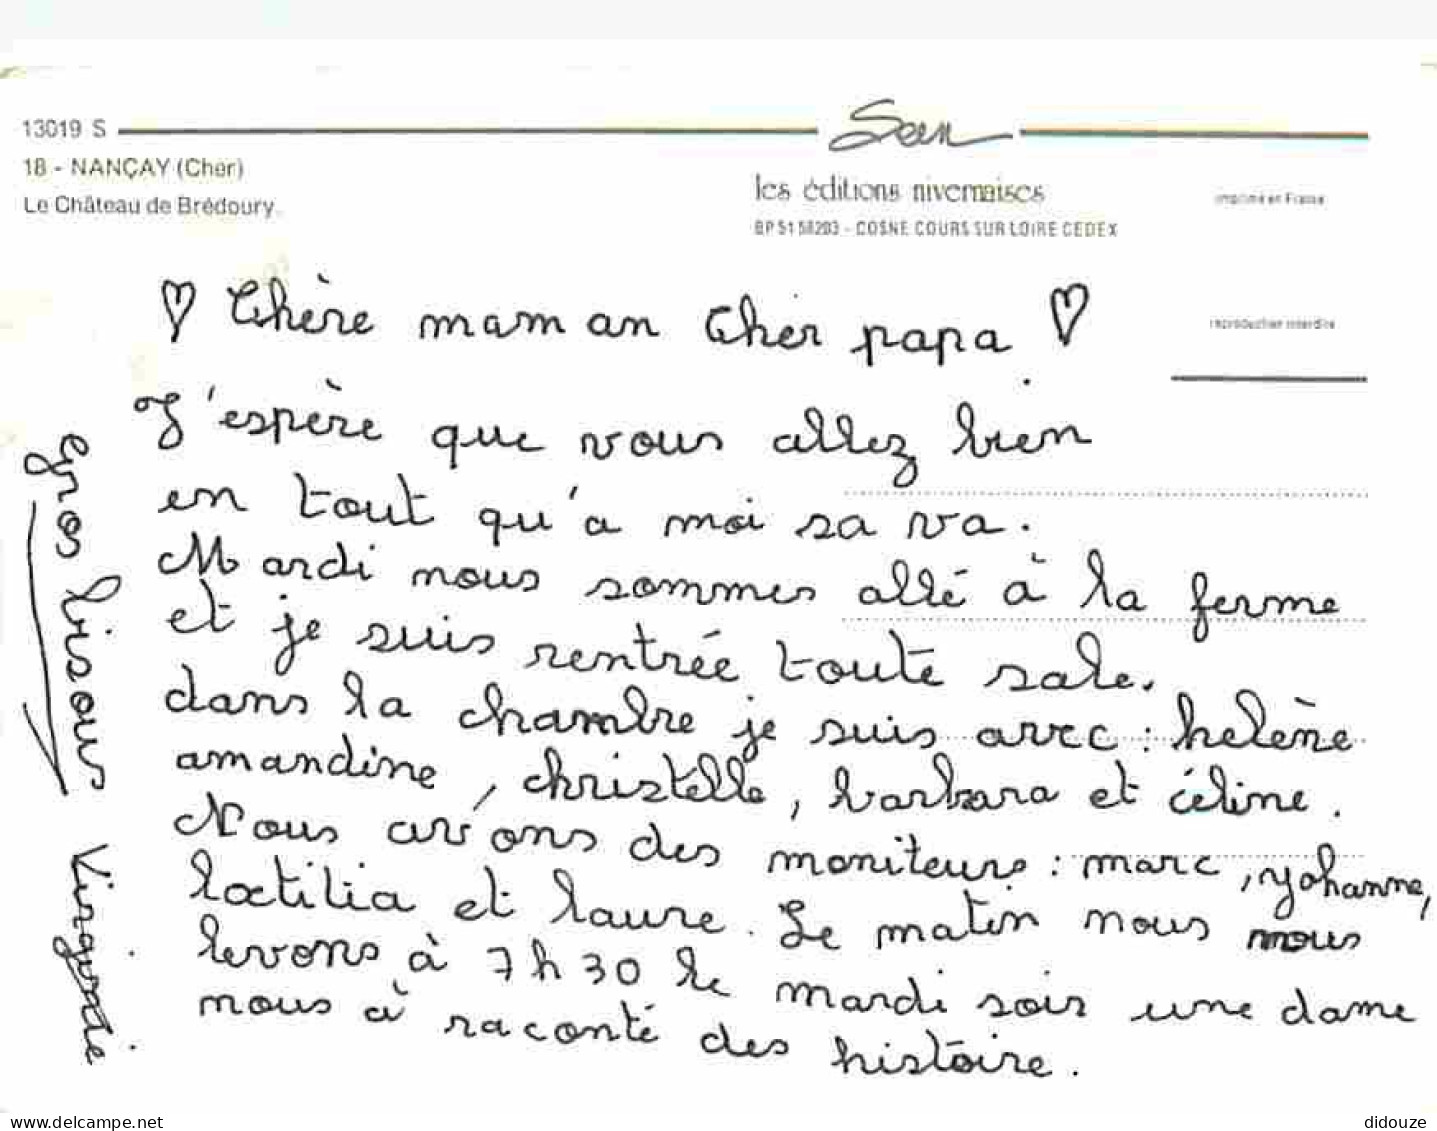 13019 S
18 - NANÇAY (Cher)
Le Château de Brédoury.
les éditions nivernaises
BP 51 58203 - COSNE COURS SUR LOIRE CEDEX
imprimé en France
reproduction interdite
♡ Chère maman Cher papa ♡
J'espère que vous allez bien
en tout qu'a moi sa va.
Mardi nous sommes allé à la ferme
et je suis rentrée toute sale.
dans la chambre je suis avec : helène
amandine, christelle, barbara et céline.
Nous avons des moniteurs : marc, yohanne,
laetitia et laure. Le matin nous nous
levons à 7h30 le mardi soir une dame
nous à raconté des histoire.
Gros bisous Virginie
www.delcampe.net
didouze